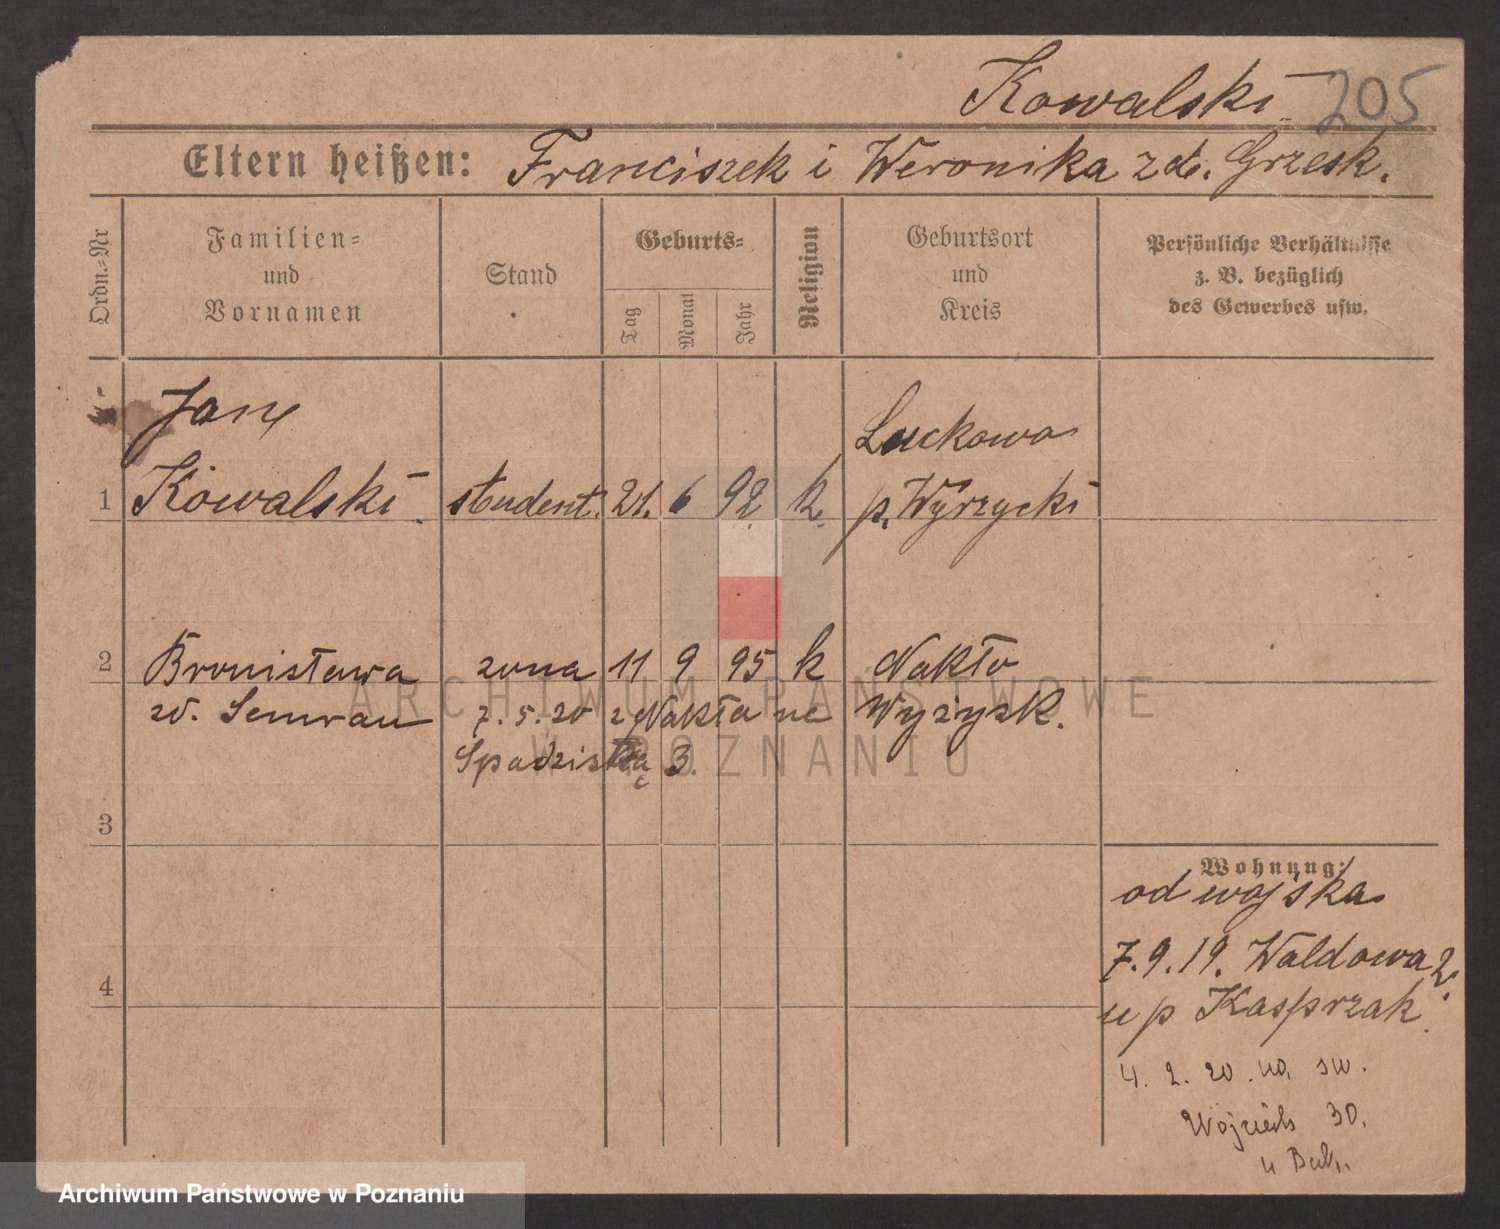 Kowalski 205
Eltern heißen: Franciszek i Weronika z d. Grzesk.
Ordn.=Nr
Familien=
und
Vornamen
Stand
Geburts=
Tag
Monat
Jahr
Religion
Geburtsort
und
Kreis
Persönliche Verhältnisse
z. B. bezüglich
des Gewerbes usw.
Jan
Luckowo
1 Kowalski student. 21. 6 92. k. p. Wyrzycki
2 Bronisława zona 11 9 95 k Nakło
zd. Semrau 7. 5. 20 z Nakła na Wyżysk.
Spadzistą 3.
3
Wohnung:
od wojska
7.9.19. Waldowa 2.
u p Kasprzak.
4
4. 2. 20. na sw.
Wojciech 30.
u
ARCHIWUM PAŃSTWOWE
W POZNANIU
Archiwum Państwowe w Poznaniu